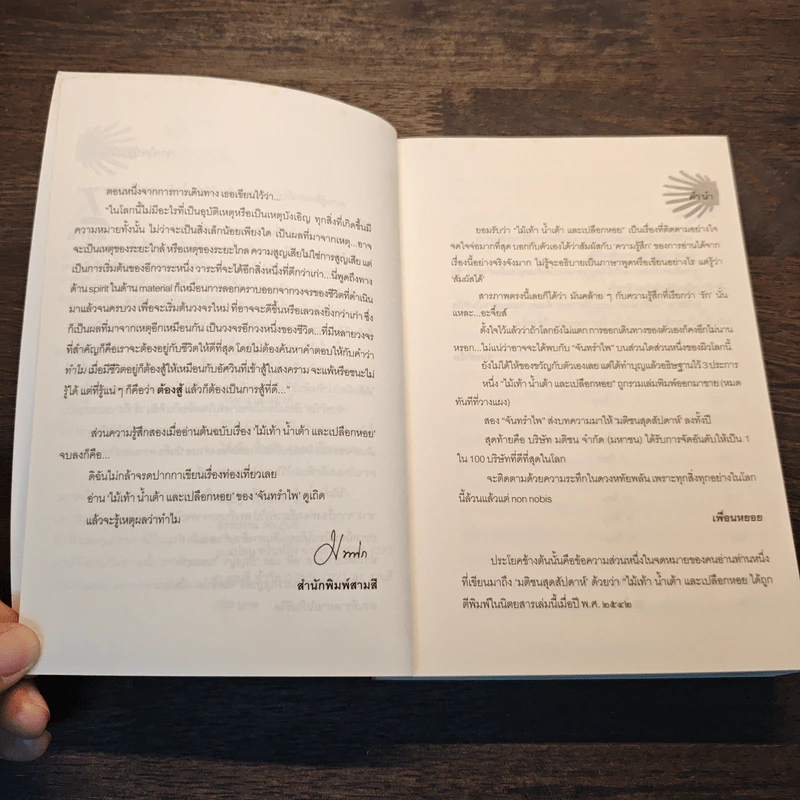 ตอนหนึ่งจากการการเดินทาง เธอเขียนไว้ว่า...
"ในโลกนี้ไม่มีอะไรที่เป็นอุบัติเหตุหรือเป็นเหตุบังเอิญ ทุกสิ่งที่เกิดขึ้นมี
ความหมายทั้งนั้น ไม่ว่าจะเป็นสิ่งเล็กน้อยเพียงใด เป็นผลที่มาจากเหตุ...อาจ
จะเป็นเหตุของระยะใกล้ หรือเหตุของระยะไกล ความสูญเสียไม่ใช่การสูญเสีย แต่
เป็นการเริ่มต้นของอีกวาระหนึ่ง วาระที่จะได้อีกสิ่งหนึ่งที่ดีกว่าเก่า...นี่พูดถึงทาง
ด้าน spirit ในด้าน material ก็เหมือนการลอกคราบออกจากวงจรของชีวิตที่ดำเนิน
มาแล้วจนครบวง เพื่อจะเริ่มต้นวงจรใหม่ ที่อาจจะดีขึ้นหรือเลวลงยิ่งกว่าเก่า ซึ่ง
ก็เป็นผลที่มาจากเหตุอีกเหมือนกัน เป็นวงจรอีกวงหนึ่งของชีวิต...ที่มีหลายวงจร
ที่สำคัญก็คือเราจะต้องอยู่กับชีวิตให้ดีที่สุด โดยไม่ต้องค้นหาคำตอบให้กับคำว่า
ทำไม เมื่อมีชีวิตอยู่ก็ต้องสู้ให้เหมือนกับอัศวินที่เข้าสู้ในสงคราม จะแพ้หรือชนะไม่
รู้ได้ แต่ที่รู้แน่ ๆ ก็คือว่า ต้องสู้ แล้วก็ต้องเป็นการสู้ที่ดี..."
ส่วนความรู้สึกสองเมื่ออ่านต้นฉบับเรื่อง 'ไม้เท้า น้ำเต้า และเปลือกหอย'
จบลงก็คือ...
ดิฉันไม่กล้าจรดปากกาเขียนเรื่องท่องเที่ยวเลย
อ่าน 'ไม้เท้า น้ำเต้า และเปลือกหอย' ของ 'จันทรำไพ' ดูเถิด
แล้วจะรู้เหตุผลว่าทำไม
สำนักพิมพ์สามสี
คำนำ
ยอมรับว่า "ไม้เท้า น้ำเต้า และเปลือกหอย" เป็นเรื่องที่ติดตามอย่างใจ
จดใจจ่อมากที่สุด บอกกับตัวเองได้ว่าสัมผัสกับ 'ความรู้สึก' ของการอ่านได้จาก
เรื่องนี้อย่างจริงจังมาก ไม่รู้จะอธิบายเป็นภาษาพูดหรือเขียนอย่างไร แต่รู้ว่า
'สัมผัสได้'
สารภาพตรงนี้เลยก็ได้ว่า มันคล้าย ๆ กับความรู้สึกที่เรียกว่า 'รัก' นั่น
แหละ...อะจึ๋ยส์
ตั้งใจไว้แล้วว่าถ้าโลกยังไม่แตก การออกเดินทางของตัวเองก็คงอีกไม่นาน
หรอก...ไม่แน่ว่าอาจจะได้พบกับ "จันทรำไพ" บนส่วนใดส่วนหนึ่งของผิวโลกนี้
ยังไม่ได้ให้ของขวัญกับตัวเองเลย แต่ได้ทำบุญแล้วอธิษฐานไว้ 3 ประการ
หนึ่ง "ไม้เท้า น้ำเต้า และเปลือกหอย" ถูกรวมเล่มพิมพ์ออกมาขาย (หมด
ทันทีที่วางแผง)
สอง "จันทรำไพ" ส่งบทความมาให้ 'มติชนสุดสัปดาห์' ลงทั้งปี
สุดท้ายคือ บริษัท มติชน จำกัด (มหาชน) ได้รับการจัดอันดับให้เป็น 1
ใน 100 บริษัทที่ดีที่สุดในโลก
จะติดตามด้วยความระทึกในดวงหทัยพลัน เพราะทุกสิ่งทุกอย่างในโลก
นี้ล้วนแล้วแต่ non nobis
เพื่อนหยอย
ประโยคข้างต้นนั้นคือข้อความส่วนหนึ่งในจดหมายของคนอ่านท่านหนึ่ง
ที่เขียนมาถึง 'มติชนสุดสัปดาห์' ด้วยว่า "ไม้เท้า น้ำเต้า และเปลือกหอย ได้ถูก
ตีพิมพ์ในนิตยสารเล่มนี้เมื่อปี พ.ศ. ๒๕๔๒